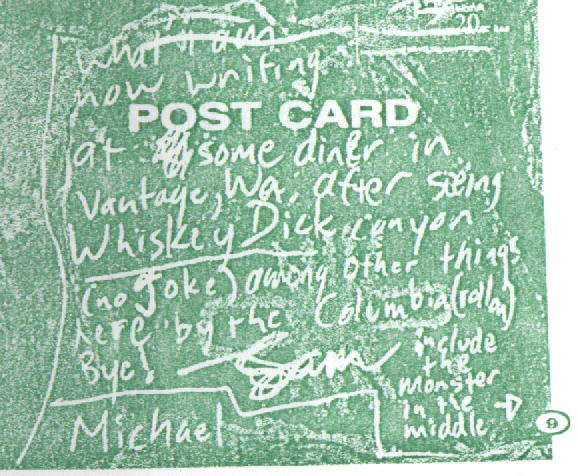 what I am
20
now writing
POST CARD
at some diner in
Vantage, Wa. after seeing
Whiskey Dick canyon
(no joke) among other things
here by the Columbia (roll on)
Bye! Sam
include
the
monster
in the
middle
Michael
9